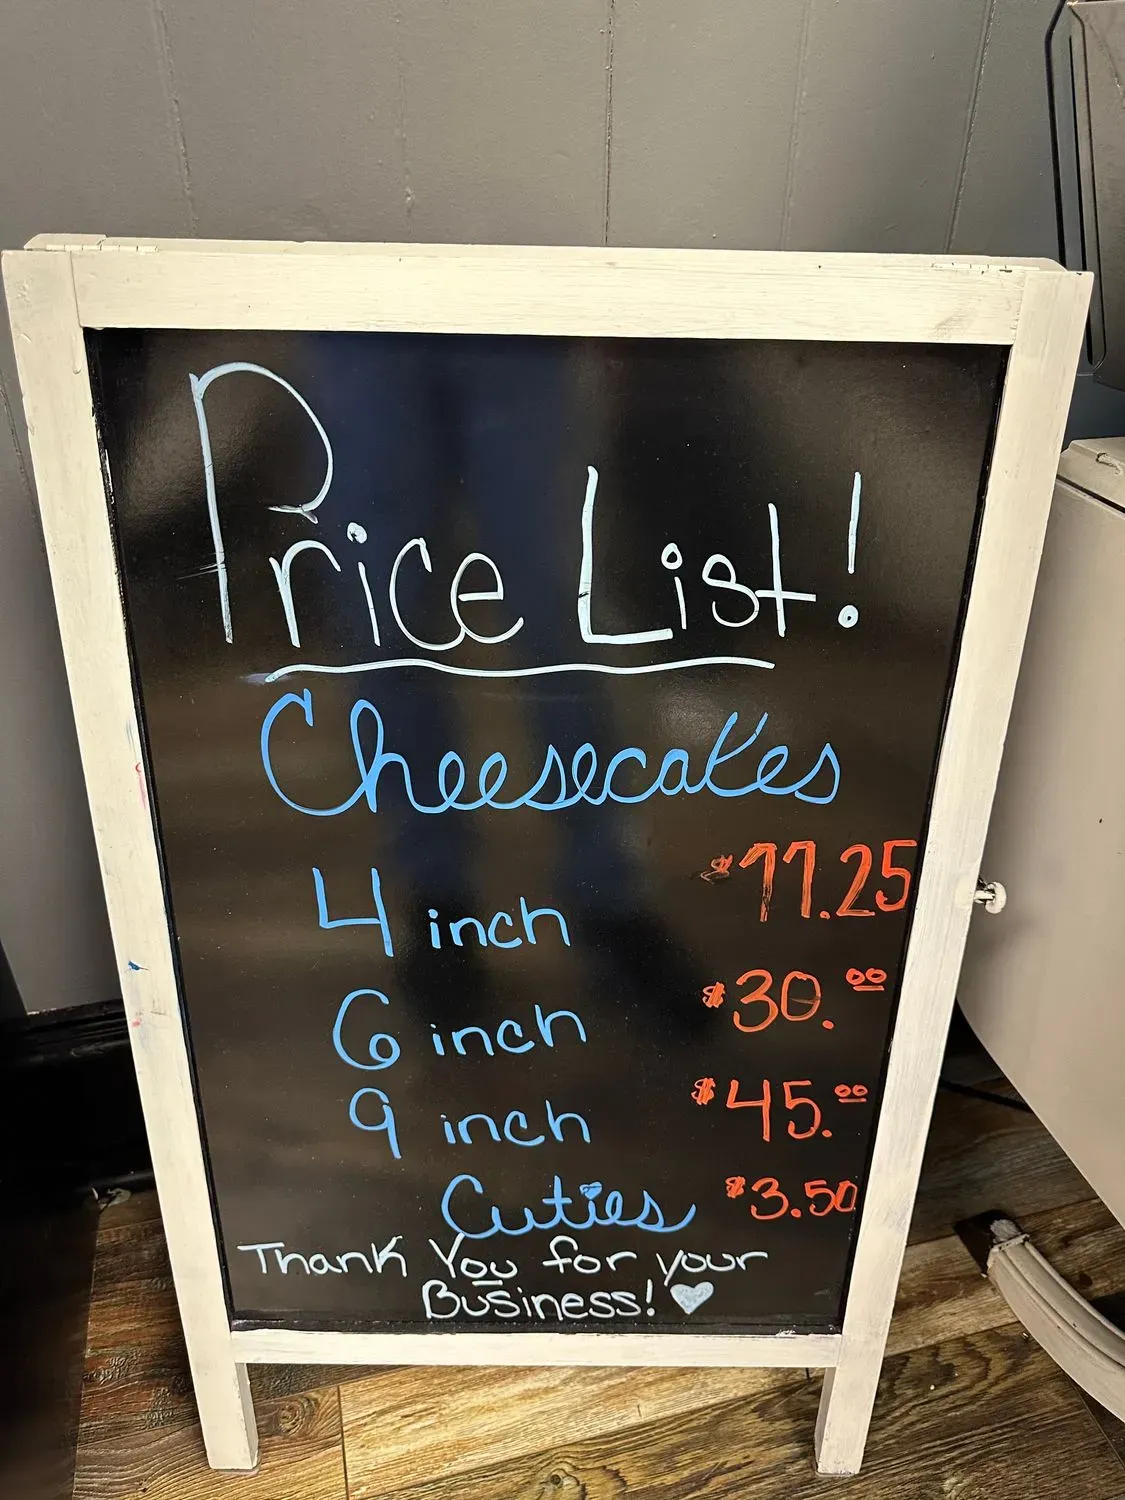 Price List!
Cheesecakes
4 inch $11.25
6 inch $30.00
9 inch $45.00
Cuties $3.50
Thank You for your
Business!